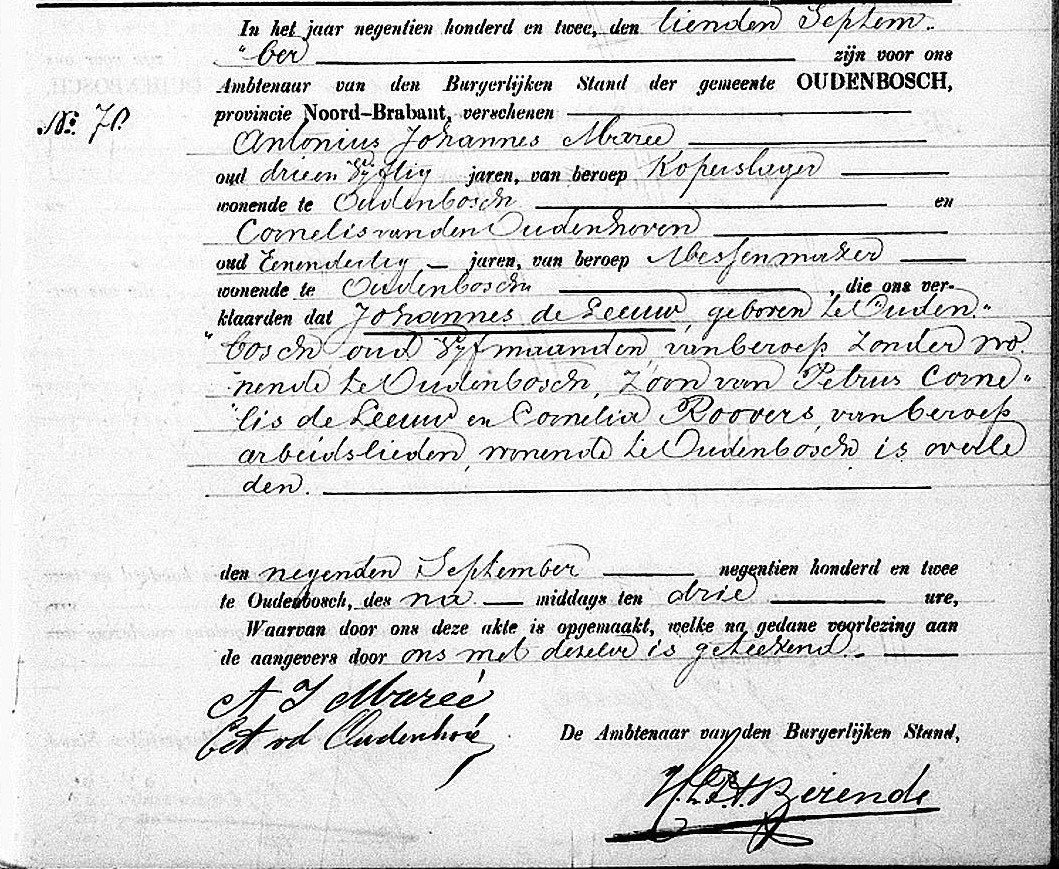 In het jaar negentien honderd en twee, den tienden Septem-
"ber zijn voor ons
Ambtenaar van den Burgerlijken Stand der gemeente OUDENBOSCH,
provincie Noord-Brabant, verschenen
No. 70.
Antonius Johannes Mareé
oud drieen Vijftig jaren, van beroep Koperslager
wonende te Oudenbosch en
Cornelis van den Oudenhoven
oud Eenendertig jaren, van beroep Messenmaker
wonende te Oudenbosch, die ons ver-
klaarden dat Johannes de Leeuw, geboren te Ouden-
"bosch, oud Vijf maanden, van beroep zonder wo-
"nende te Oudenbosch, Zoon van Petrus Corne-
"lis de Leeuw en Cornelia Roovers, van beroep
arbeidslieden, wonende te Oudenbosch, is overle
den.
den negenden September negentien honderd en twee
te Oudenbosch, des na middags ten drie ure,
Waarvan door ons deze akte is opgemaakt, welke na gedane voorlezing aan
de aangevers door ons met dezelve is geteekend.
A J Mareé
vd Oudenhove
De Ambtenaar van den Burgerlijken Stand,
Berende